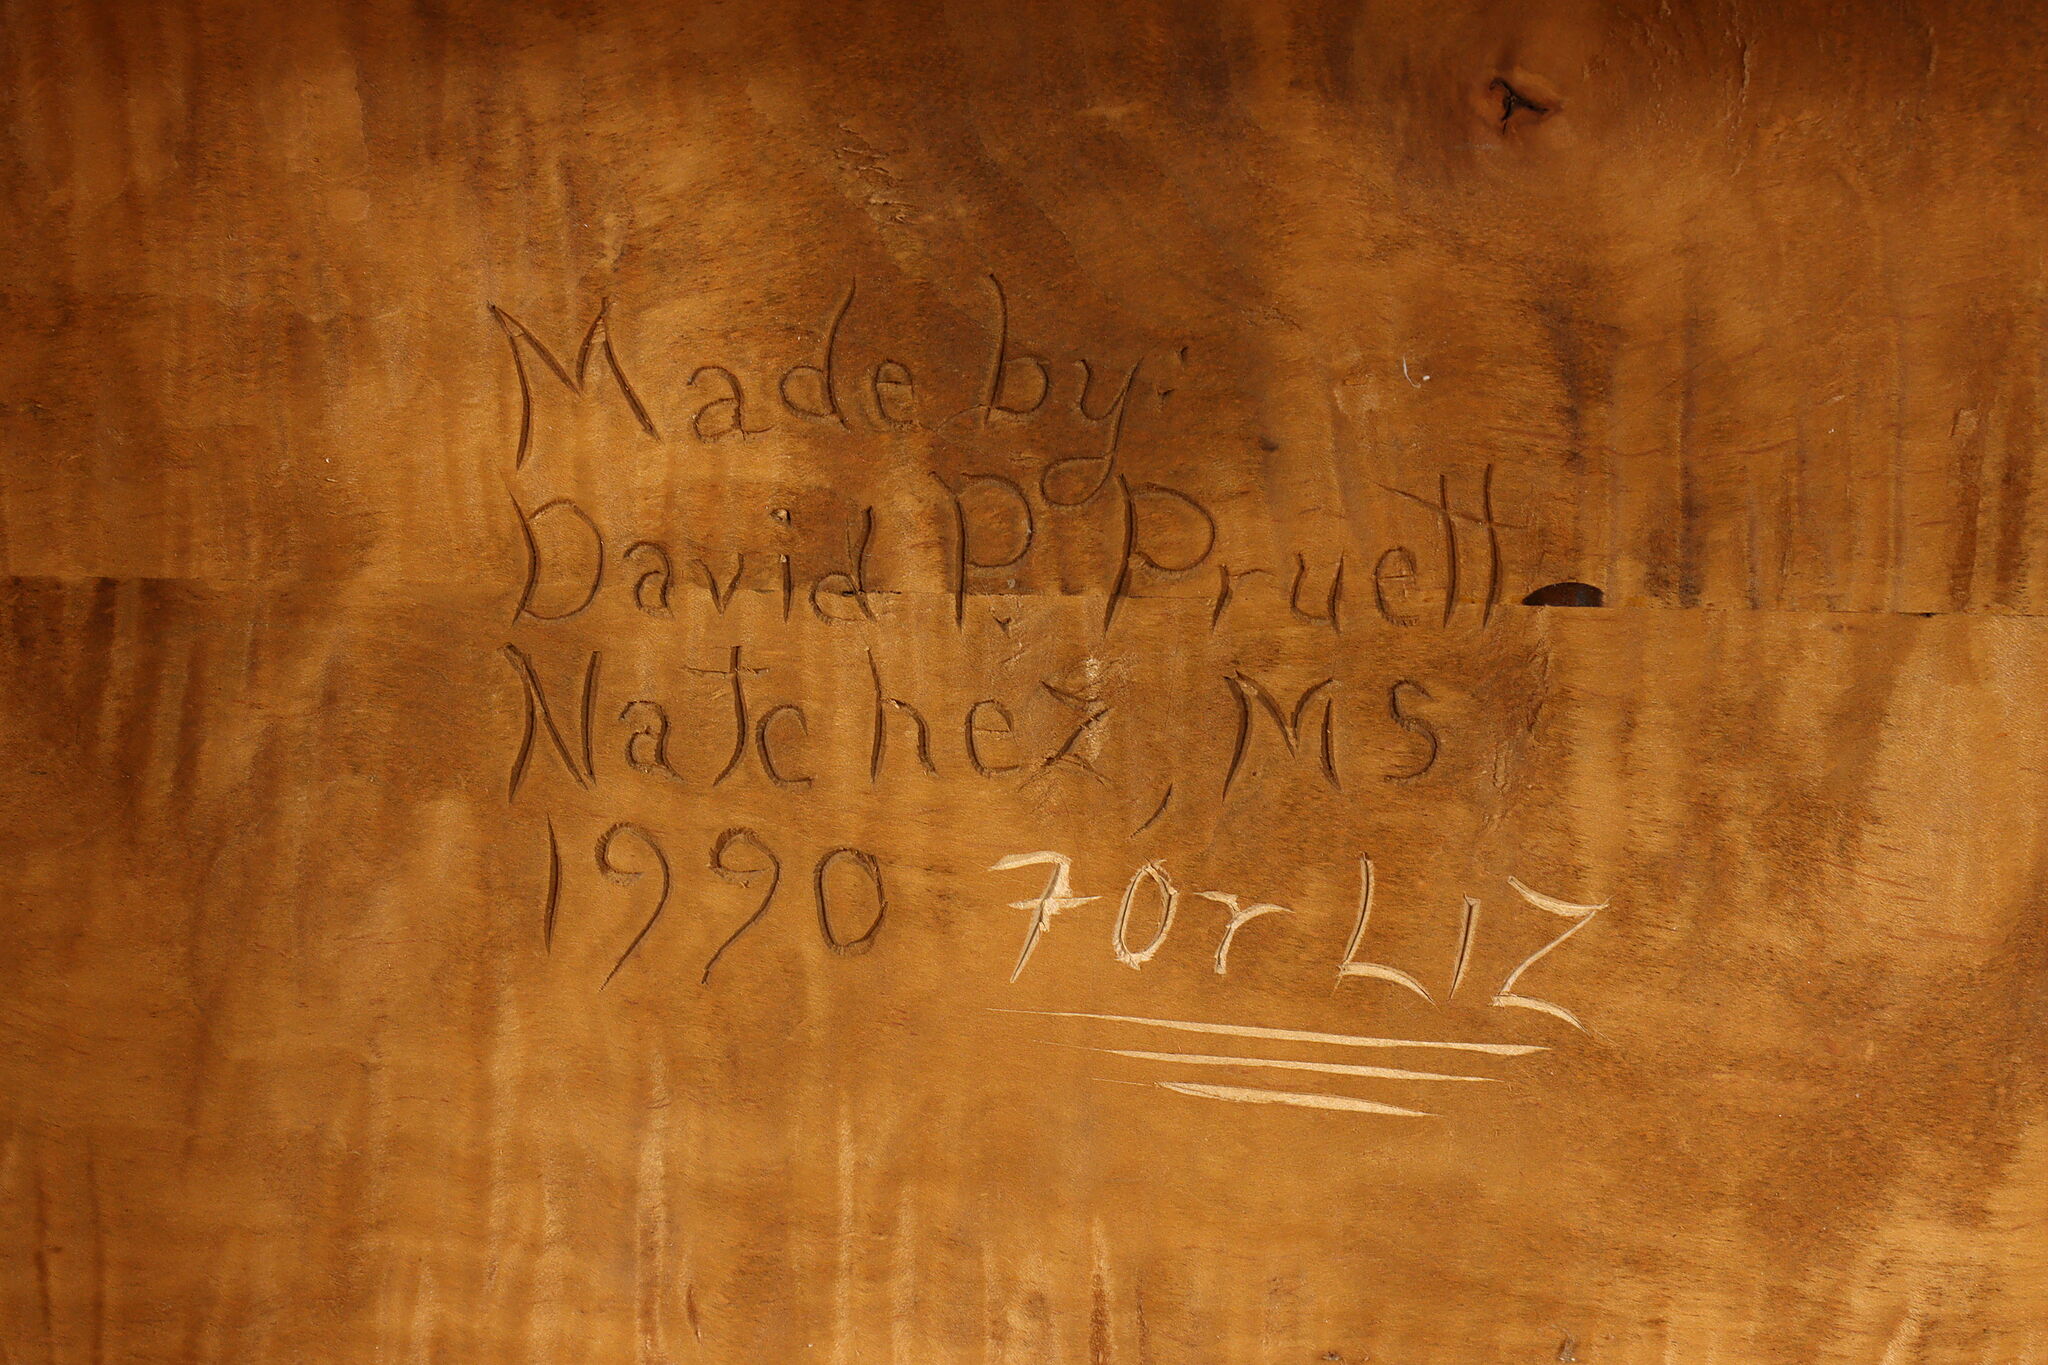 Made by:
David P. Pruett
Natchez, MS
1990 For LIZ